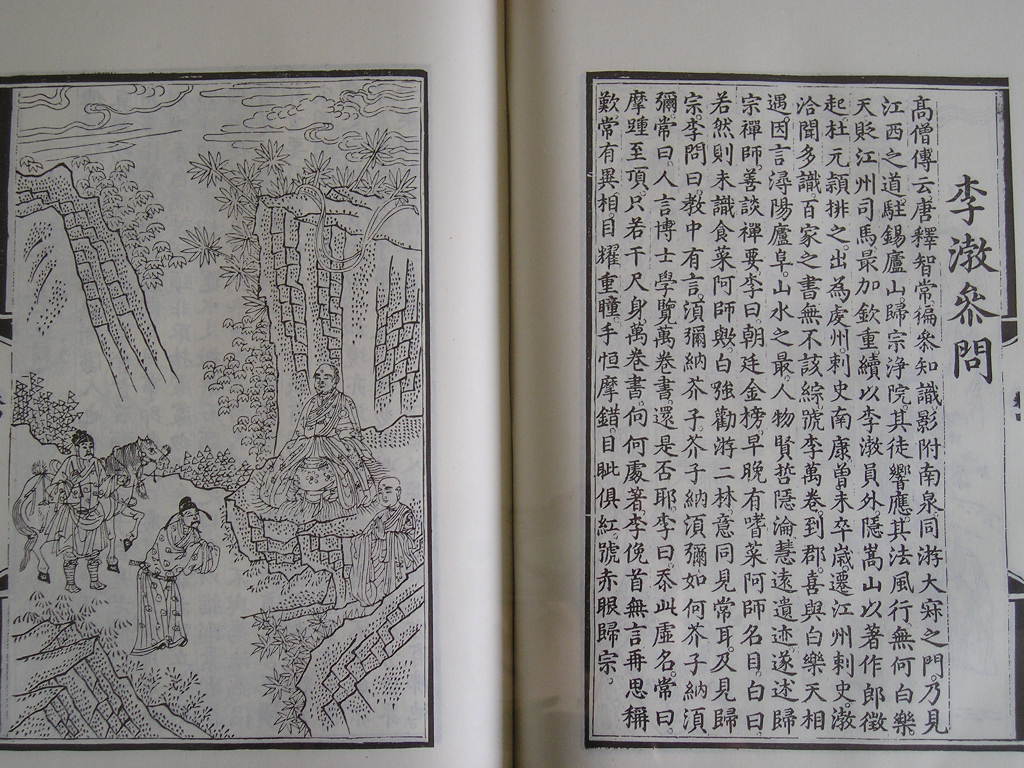 李潡叅問
高僧傳云唐釋智常徧叅知識影附南泉同游大寂之門。乃見
江西之道。駐錫廬山歸宗淨院。其徒響應其法風行無何白樂
天貶江州司馬最加欽重續以李潡員外隱嵩山以著作郎徵
起。杜元頴排之。出為虔州刺史南康曽未卒歲遷江州刺史。潡
洽聞多識。百家之書無不該綜號李萬卷到郡。喜與白樂天相
遇。因言潯陽廬阜。山水之最。人物賢哲隱淪。慧遠遺迹。遂述歸
宗禪師。善談禪要李曰朝廷金榜早晚有嗜菜阿師名目。白曰
若然則未識食菜阿師歟。白強勸游二林意同見常耳。及見歸
宗。李問曰教中有言。須彌納芥子。芥子納須彌如何芥子納須
彌。常曰人言博士學覽萬卷書還是否耶。李曰忝此虛名。常曰
摩踵至頂。只若干尺身萬卷書。向何處著李俛首無言再思稱
歎。常有異相。目耀重瞳。手恒摩錯。目眦俱紅。號赤眼歸宗。